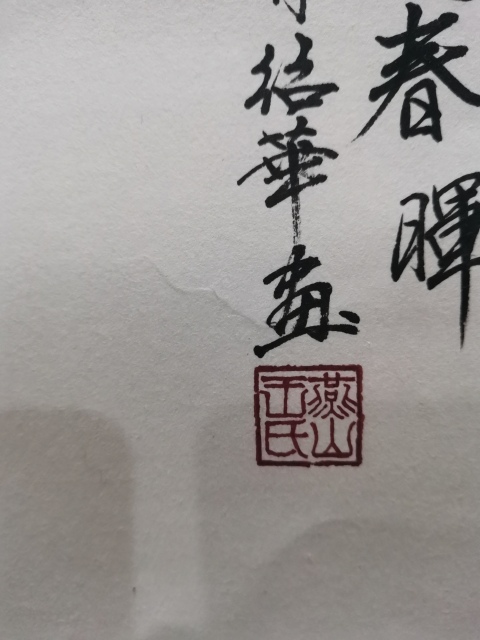 春暉
绍華畫
燕山
王氏